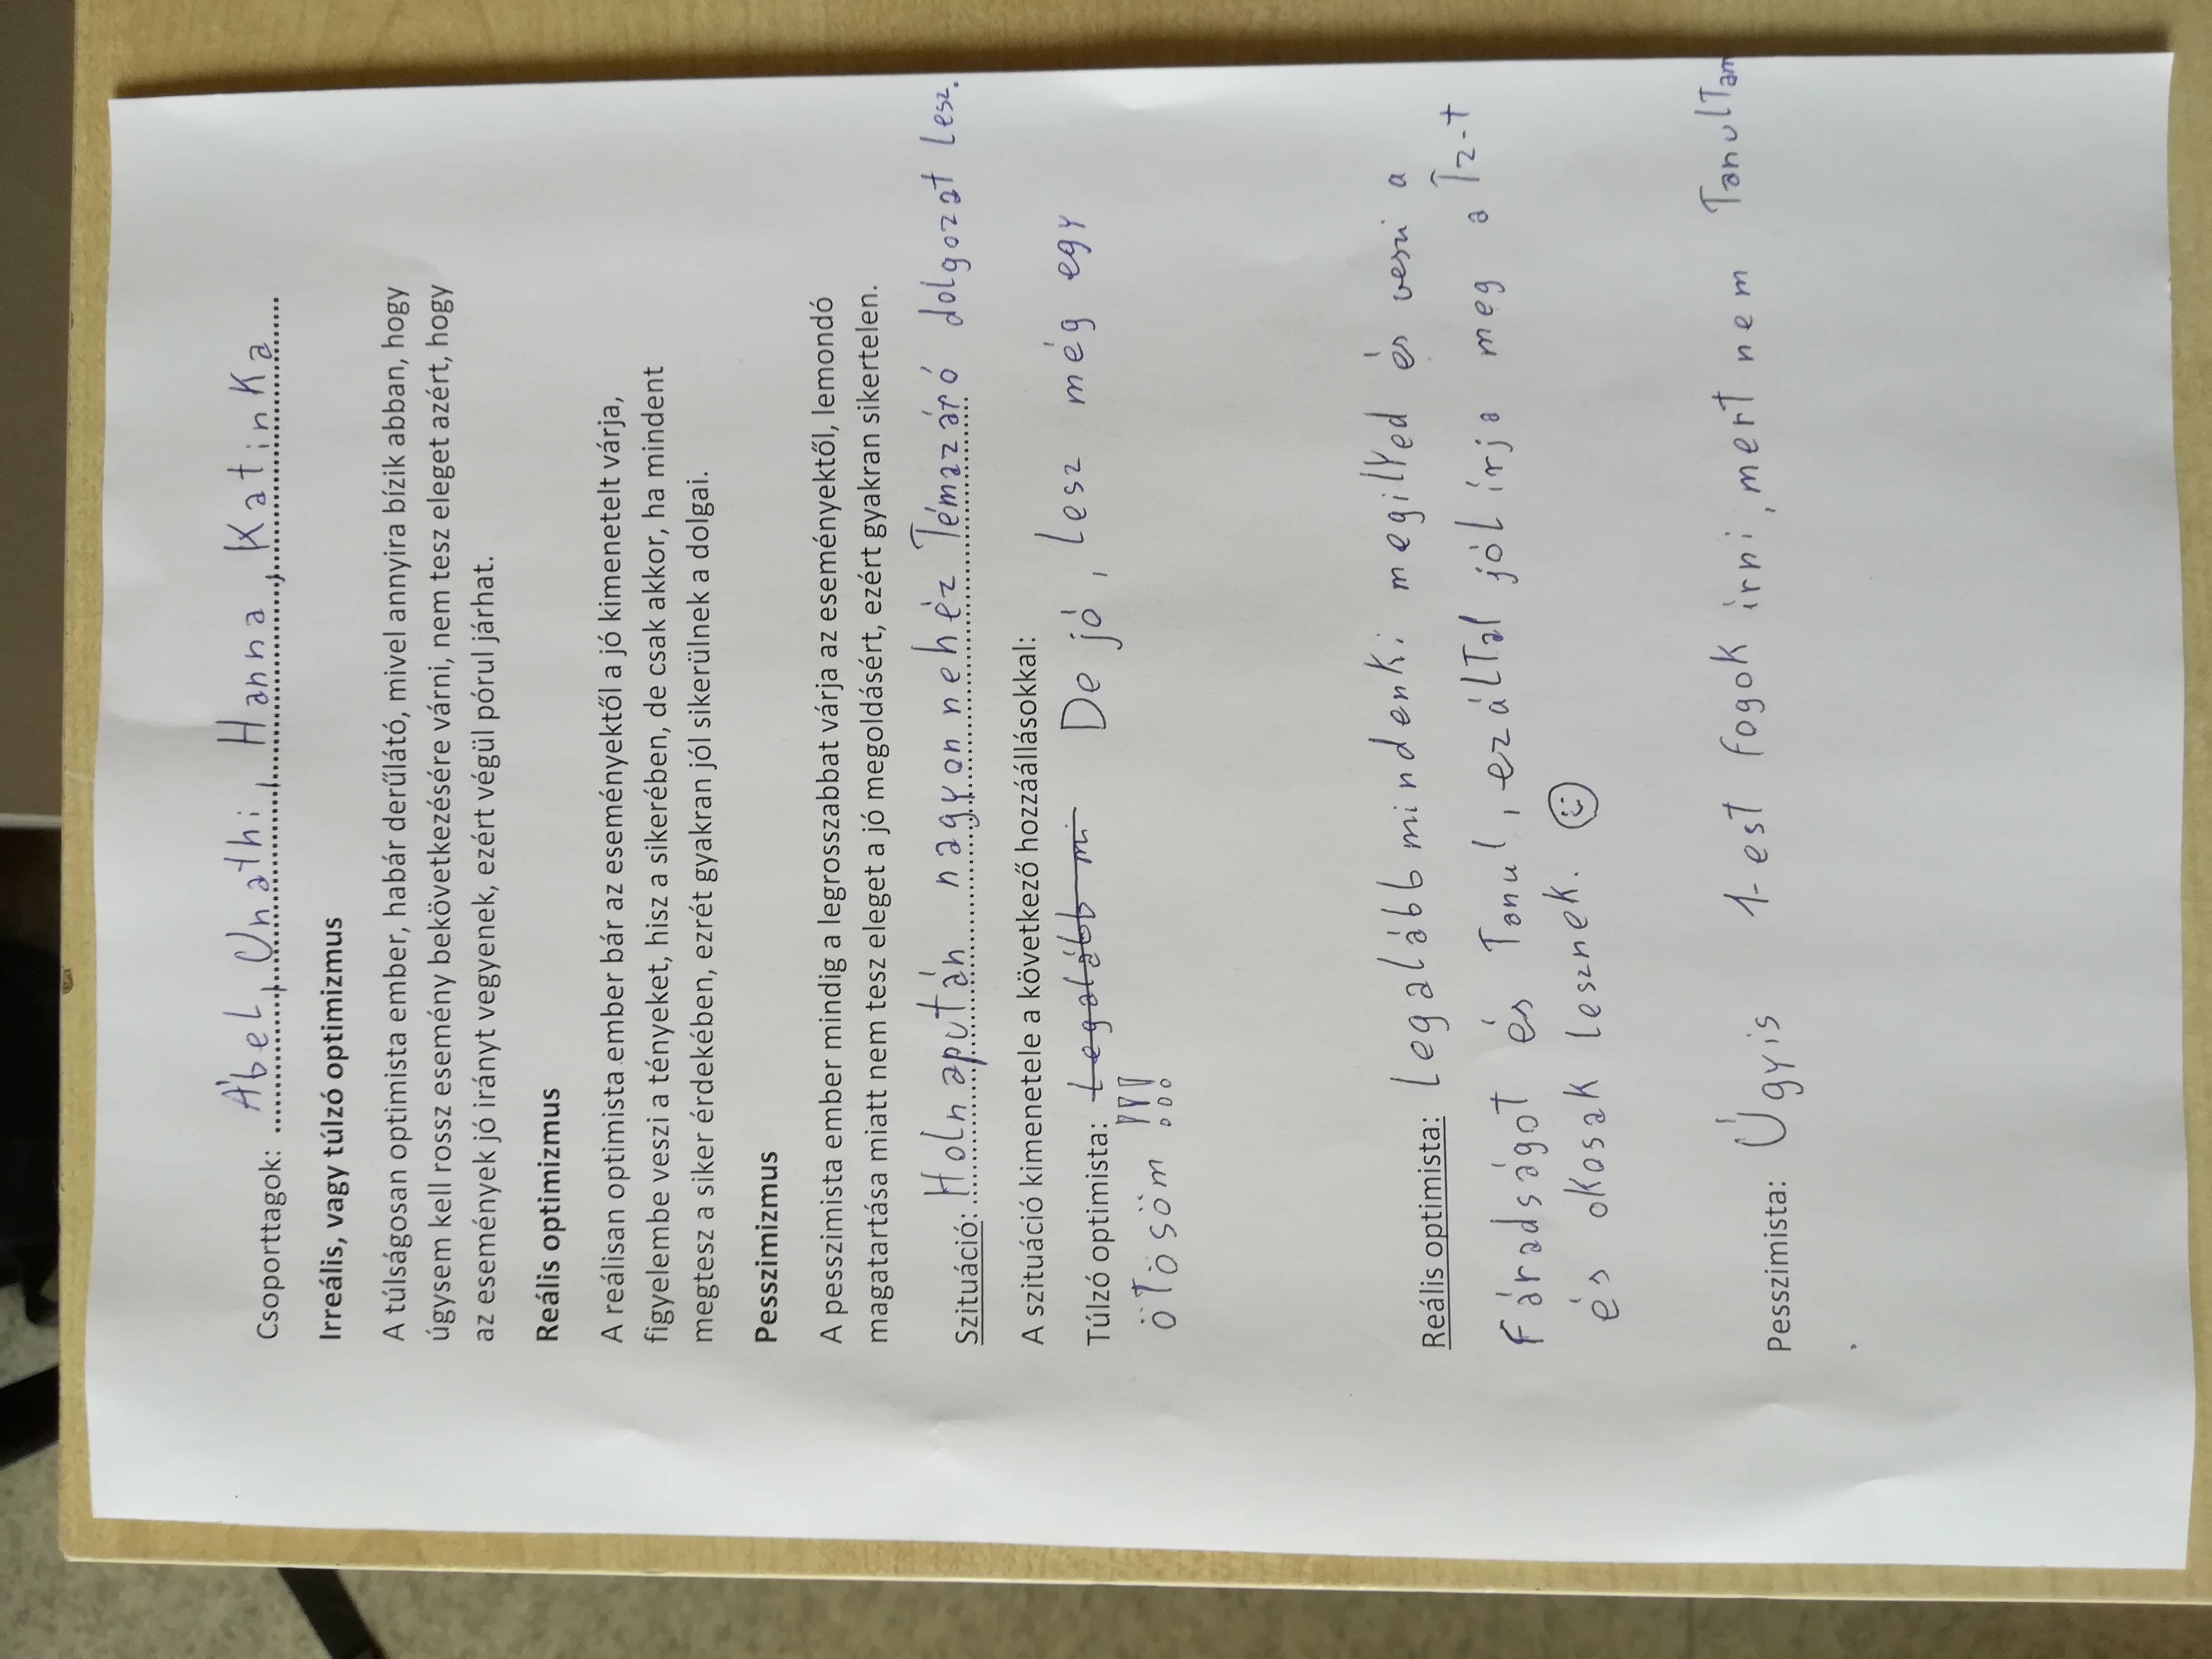 Csoporttagok: Ábel, Unathi, Hanna, Katinka
Irreális, vagy túlzó optimizmus
A túlságosan optimista ember, habár derűlátó, mivel annyira bízik abban, hogy
úgysem kell rossz esemény bekövetkezésére várni, nem tesz eleget azért, hogy
az események jó irányt vegyenek, ezért végül pórul járhat.
Reális optimizmus
A reálisan optimista ember bár az eseményektől a jó kimenetelt várja,
figyelembe veszi a tényeket, hisz a sikerében, de csak akkor, ha mindent
megtesz a siker érdekében, ezrét gyakran jól sikerülnek a dolgai.
Pesszimizmus
A pesszimista ember mindig a legrosszabbat várja az eseményektől, lemondó
magatartása miatt nem tesz eleget a jó megoldásért, ezért gyakran sikertelen.
Szituáció: Holnapután nagyon nehéz Témazáró dolgozat lesz.
A szituáció kimenetele a következő hozzáállásokkal:
Túlzó optimista: Legalább mi De jó, lesz még egy
ötösöm!!!
Reális optimista: Legalább mindenki megilyed és veszi a
fáradságot és Tanul, ezálTal jól írja meg a Tz-t
és okosak lesznek. ☺
Pesszimista: Úgyis 1-est fogok írni, mert nem TanulTam